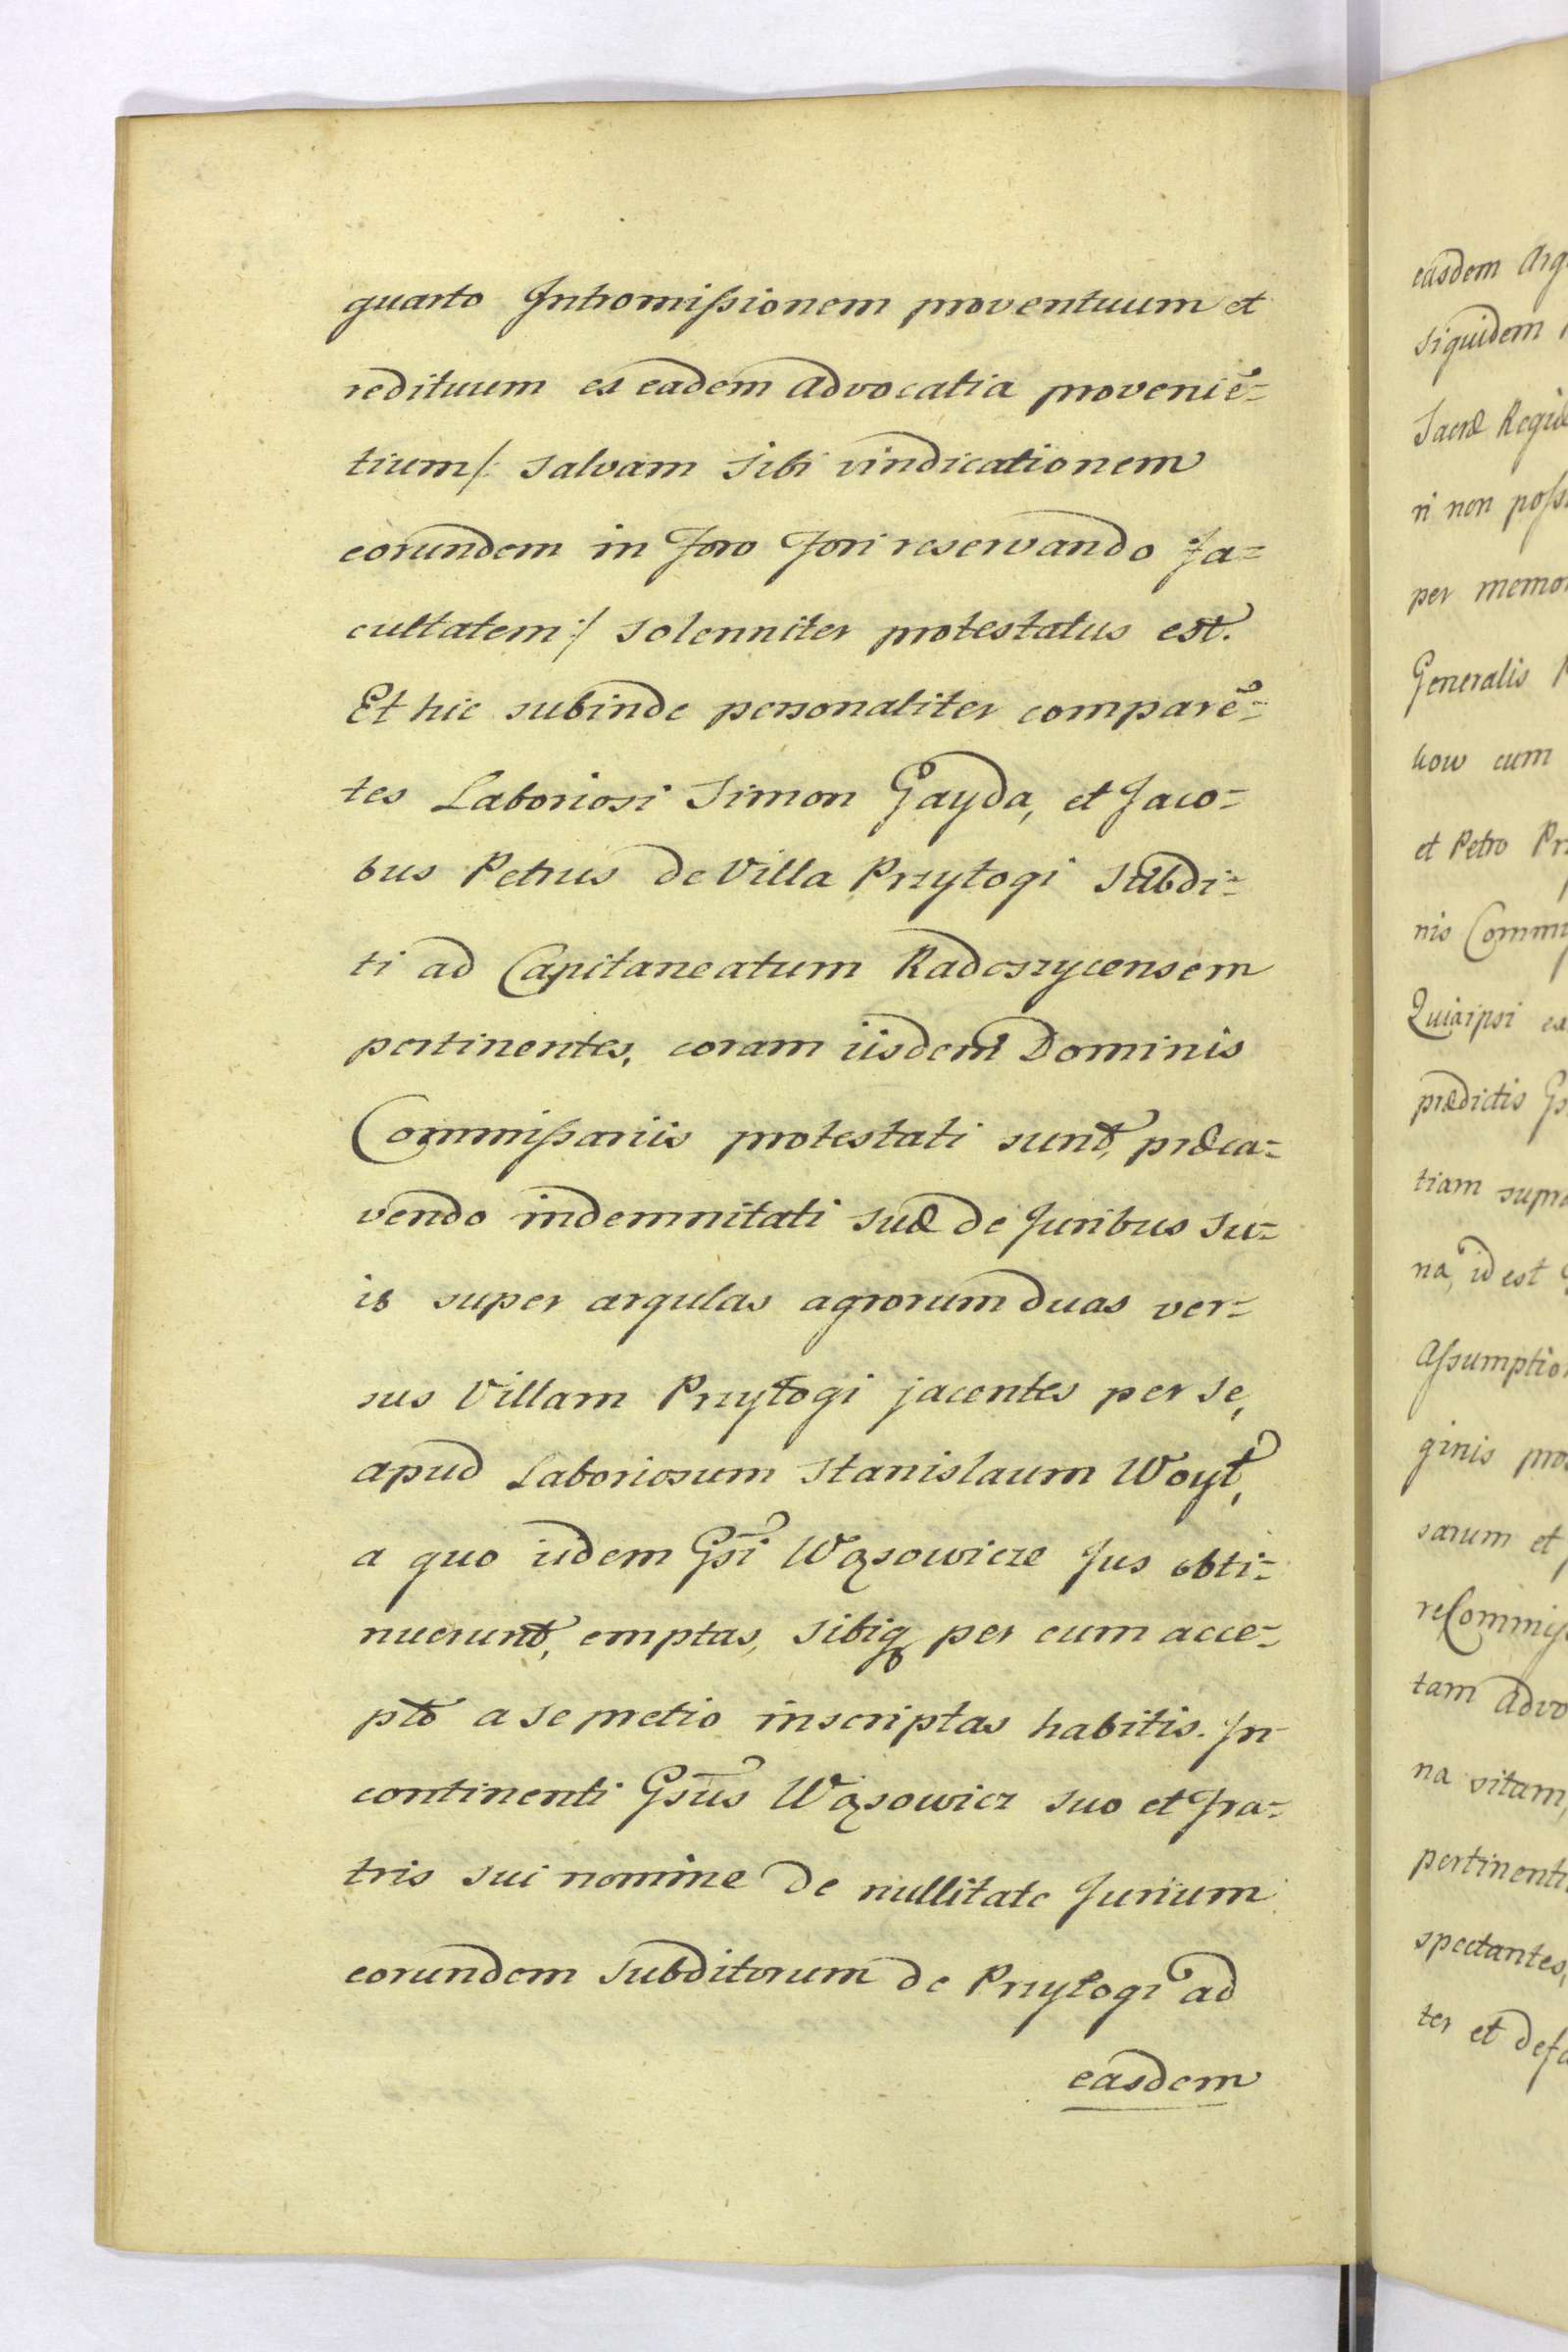 quarto Intromissionem proventuum et
redituum ex eadem advocatia proveniē=
tium/: salvam sibi vindicationem
eorundem in Foro Fori reservando fa=
cultatem:/ solenniter protestatus est.
Et hic subinde personaliter comparē=
tes Laboriosi Simon Gayda, et Jaco=
bus Petrus de Villa Przyłogi Subdi=
ti ad Capitaneatum Radoszycensem
pertinentes, coram iisdem Dominis
Commissariis protestati sunt, præca=
vendo indemnitati suæ de Juribus su=
is super argulas agrorum duas ver=
sus Villam Przyłogi jacentes per se,
apud Laboriosum Stanislaum Woyt,
a quo iidem Gsi Wąsowicze Jus obti=
nuerunt, emptas, sibiq per eum acce=
pto a se pretio inscriptas habitis. In
continenti Gsus Wąsowicz suo et fra=
tris sui nomine de nullitate Jurium
eorundem subditorum de Przyłogi ad
easdem
easdem Arg
siquidem
Sacræ Regiæ
ri non poss
per memo
Generalis
kow cum
et Petro Pr
nis Commi
Quia ipsi ea
prædictis Gs
tiam supra
na, id est
Assumptio
ginis pro
sarum et
re Commis
tam advo
na vitam
pertinenti
spectantes,
ter et defa